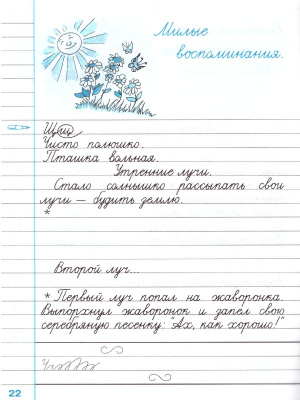 Милые
воспоминания.
Щ щ
Чисто полюшко.
Пташка вольная.
Утренние лучи.
Стало солнышко рассыпать свои
лучи — будить землю.
*
Второй луч...
* Первый луч попал на жаворонка.
Выпорхнул жаворонок и запел свою
серебряную песенку: "Ах, как хорошо!"
22